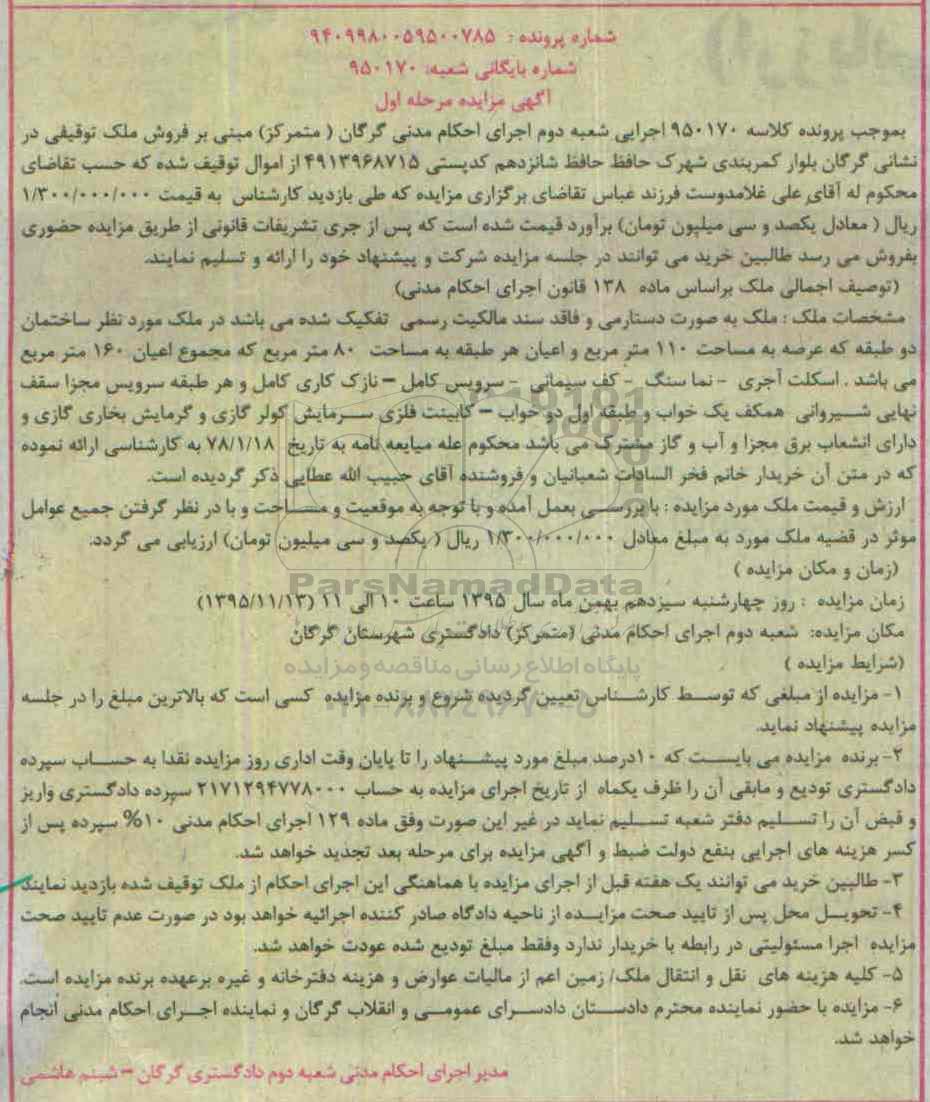 شماره پرونده : ۹۴۰۹۹۸۰۰۵۹۵۰۰۷۸۵
شماره بایگانی شعبه: ۹۵۰۱۷۰
آگهی مزایده مرحله اول
بموجب پرونده کلاسه ۹۵۰۱۷۰ اجرایی شعبه دوم اجرای احکام مدنی گرگان ( متمرکز) مبنی بر فروش ملک توقیفی در
نشانی گرگان بلوار کمربندی شهرک حافظ حافظ شانزدهم کدپستی ۴۹۱۳۹۶۸۷۱۵ از اموال توقیف شده که حسب تقاضای
محکوم له آقای علی غلامدوست فرزند عباس تقاضای برگزاری مزایده که طی بازدید کارشناس به قیمت ۱/۳۰۰/۰۰۰/۰۰۰
ریال ( معادل یکصد و سی میلیون تومان) برآورد قیمت شده است که پس از جری تشریفات قانونی از طریق مزایده حضوری
بفروش می رسد طالبین خرید می توانند در جلسه مزایده شرکت و پیشنهاد خود را ارائه و تسلیم نمایند.
(توصیف اجمالی ملک براساس ماده ۱۳۸ قانون اجرای احکام مدنی)
مشخصات ملک : ملک به صورت دستارمی و فاقد سند مالکیت رسمی تفکیک شده می باشد در ملک مورد نظر ساختمان
دو طبقه که عرصه به مساحت ۱۱۰ متر مربع و اعیان هر طبقه به مساحت ۸۰ متر مربع که مجموع اعیان ۱۶۰ متر مربع
می باشد . اسکلت آجری - نما سنگ - کف سیمانی - سرویس کامل – نازک کاری کامل و هر طبقه سرویس مجزا سقف
نهایی شیروانی همکف یک خواب و طبقه اول دو خواب – کابینت فلزی سرمایش کولر گازی و گرمایش بخاری گازی و
دارای انشعاب برق مجزا و آب و گاز مشترک می باشد محکوم عله مبایعه نامه به تاریخ ۷۸/۱/۱۸ به کارشناسی ارائه نموده
که در متن آن خریدار خانم فخر السادات شعبانیان و فروشنده آقای حبیب الله عطایی ذکر گردیده است.
ارزش و قیمت ملک مورد مزایده : با بررسی بعمل آمده و با توجه به موقعیت و مساحت و با در نظر گرفتن جمیع عوامل
موثر در قضیه ملک مورد به مبلغ معادل ۱/۳۰۰/۰۰۰/۰۰۰ ریال ( یکصد و سی میلیون تومان) ارزیابی می گردد.
(زمان و مکان مزایده )
زمان مزایده : روز چهارشنبه سیزدهم بهمن ماه سال ۱۳۹۵ ساعت ۱۰ الی ۱۱ (۱۳۹۵/۱۱/۱۳)
ParsNamadData
مکان مزایده: شعبه دوم اجرای احکام مدنی (متمرکز) دادگستری شهرستان گرگان
(شرایط مزایده )
پایگاه اطلاع رسانی مناقصه و مزایده
۱- مزایده از مبلغی که توسط کارشناس تعیین گردیده شروع و برنده مزایده کسی است که بالاترین مبلغ را در جلسه
مزایده پیشنهاد نماید.
۲- برنده مزایده می بایست که ۱۰درصد مبلغ مورد پیشنهاد را تا پایان وقت اداری روز مزایده نقدا به حساب سپرده
دادگستری تودیع و مابقی آن را ظرف یکماه از تاریخ اجرای مزایده به حساب ۲۱۷۱۲۹۴۷۷۸۰۰۰ سپرده دادگستری واریز
و قبض آن را تسلیم دفتر شعبه تسلیم نماید در غیر این صورت وفق ماده ۱۲۹ اجرای احکام مدنی ۱۰% سپرده پس از
کسر هزینه های اجرایی بنفع دولت ضبط و آگهی مزایده برای مرحله بعد تجدید خواهد شد.
۳- طالبین خرید می توانند یک هفته قبل از اجرای مزایده با هماهنگی این اجرای احکام از ملک توقیف شده بازدید نمایند
۴- تحویل محل پس از تایید صحت مزایده از ناحیه دادگاه صادر کننده اجرائیه خواهد بود در صورت عدم تایید صحت
مزایده اجرا مسئولیتی در رابطه با خریدار ندارد وفقط مبلغ تودیع شده عودت خواهد شد.
۵- کلیه هزینه های نقل و انتقال ملک/ زمین اعم از مالیات عوارض و هزینه دفترخانه و غیره برعهده برنده مزایده است.
۶- مزایده با حضور نماینده محترم دادستان دادسرای عمومی و انقلاب گرگان و نماینده اجرای احکام مدنی انجام
خواهد شد.
مدیر اجرای احکام مدنی شعبه دوم دادگستری گرگان – شبنم هاشمی